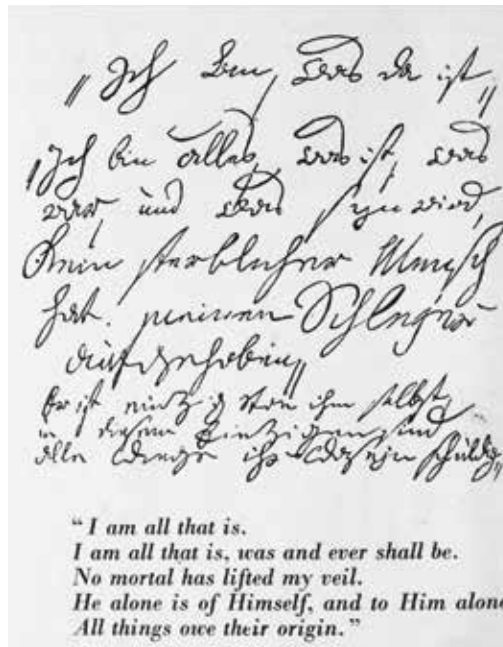 „Ich bin, was da ist„
„Ich bin alles, was ist, was
war, und was seyn wird,
Kein sterblicher Mensch
hat meinen Schleyer
aufgehoben„
Er ist einzig von ihm selbst,
u. diesem Einzigen sind
alle Dinge ihr Daseyn schuldig„
"I am all that is.
I am all that is, was and ever shall be.
No mortal has lifted my veil.
He alone is of Himself, and to Him alone
All things owe their origin."